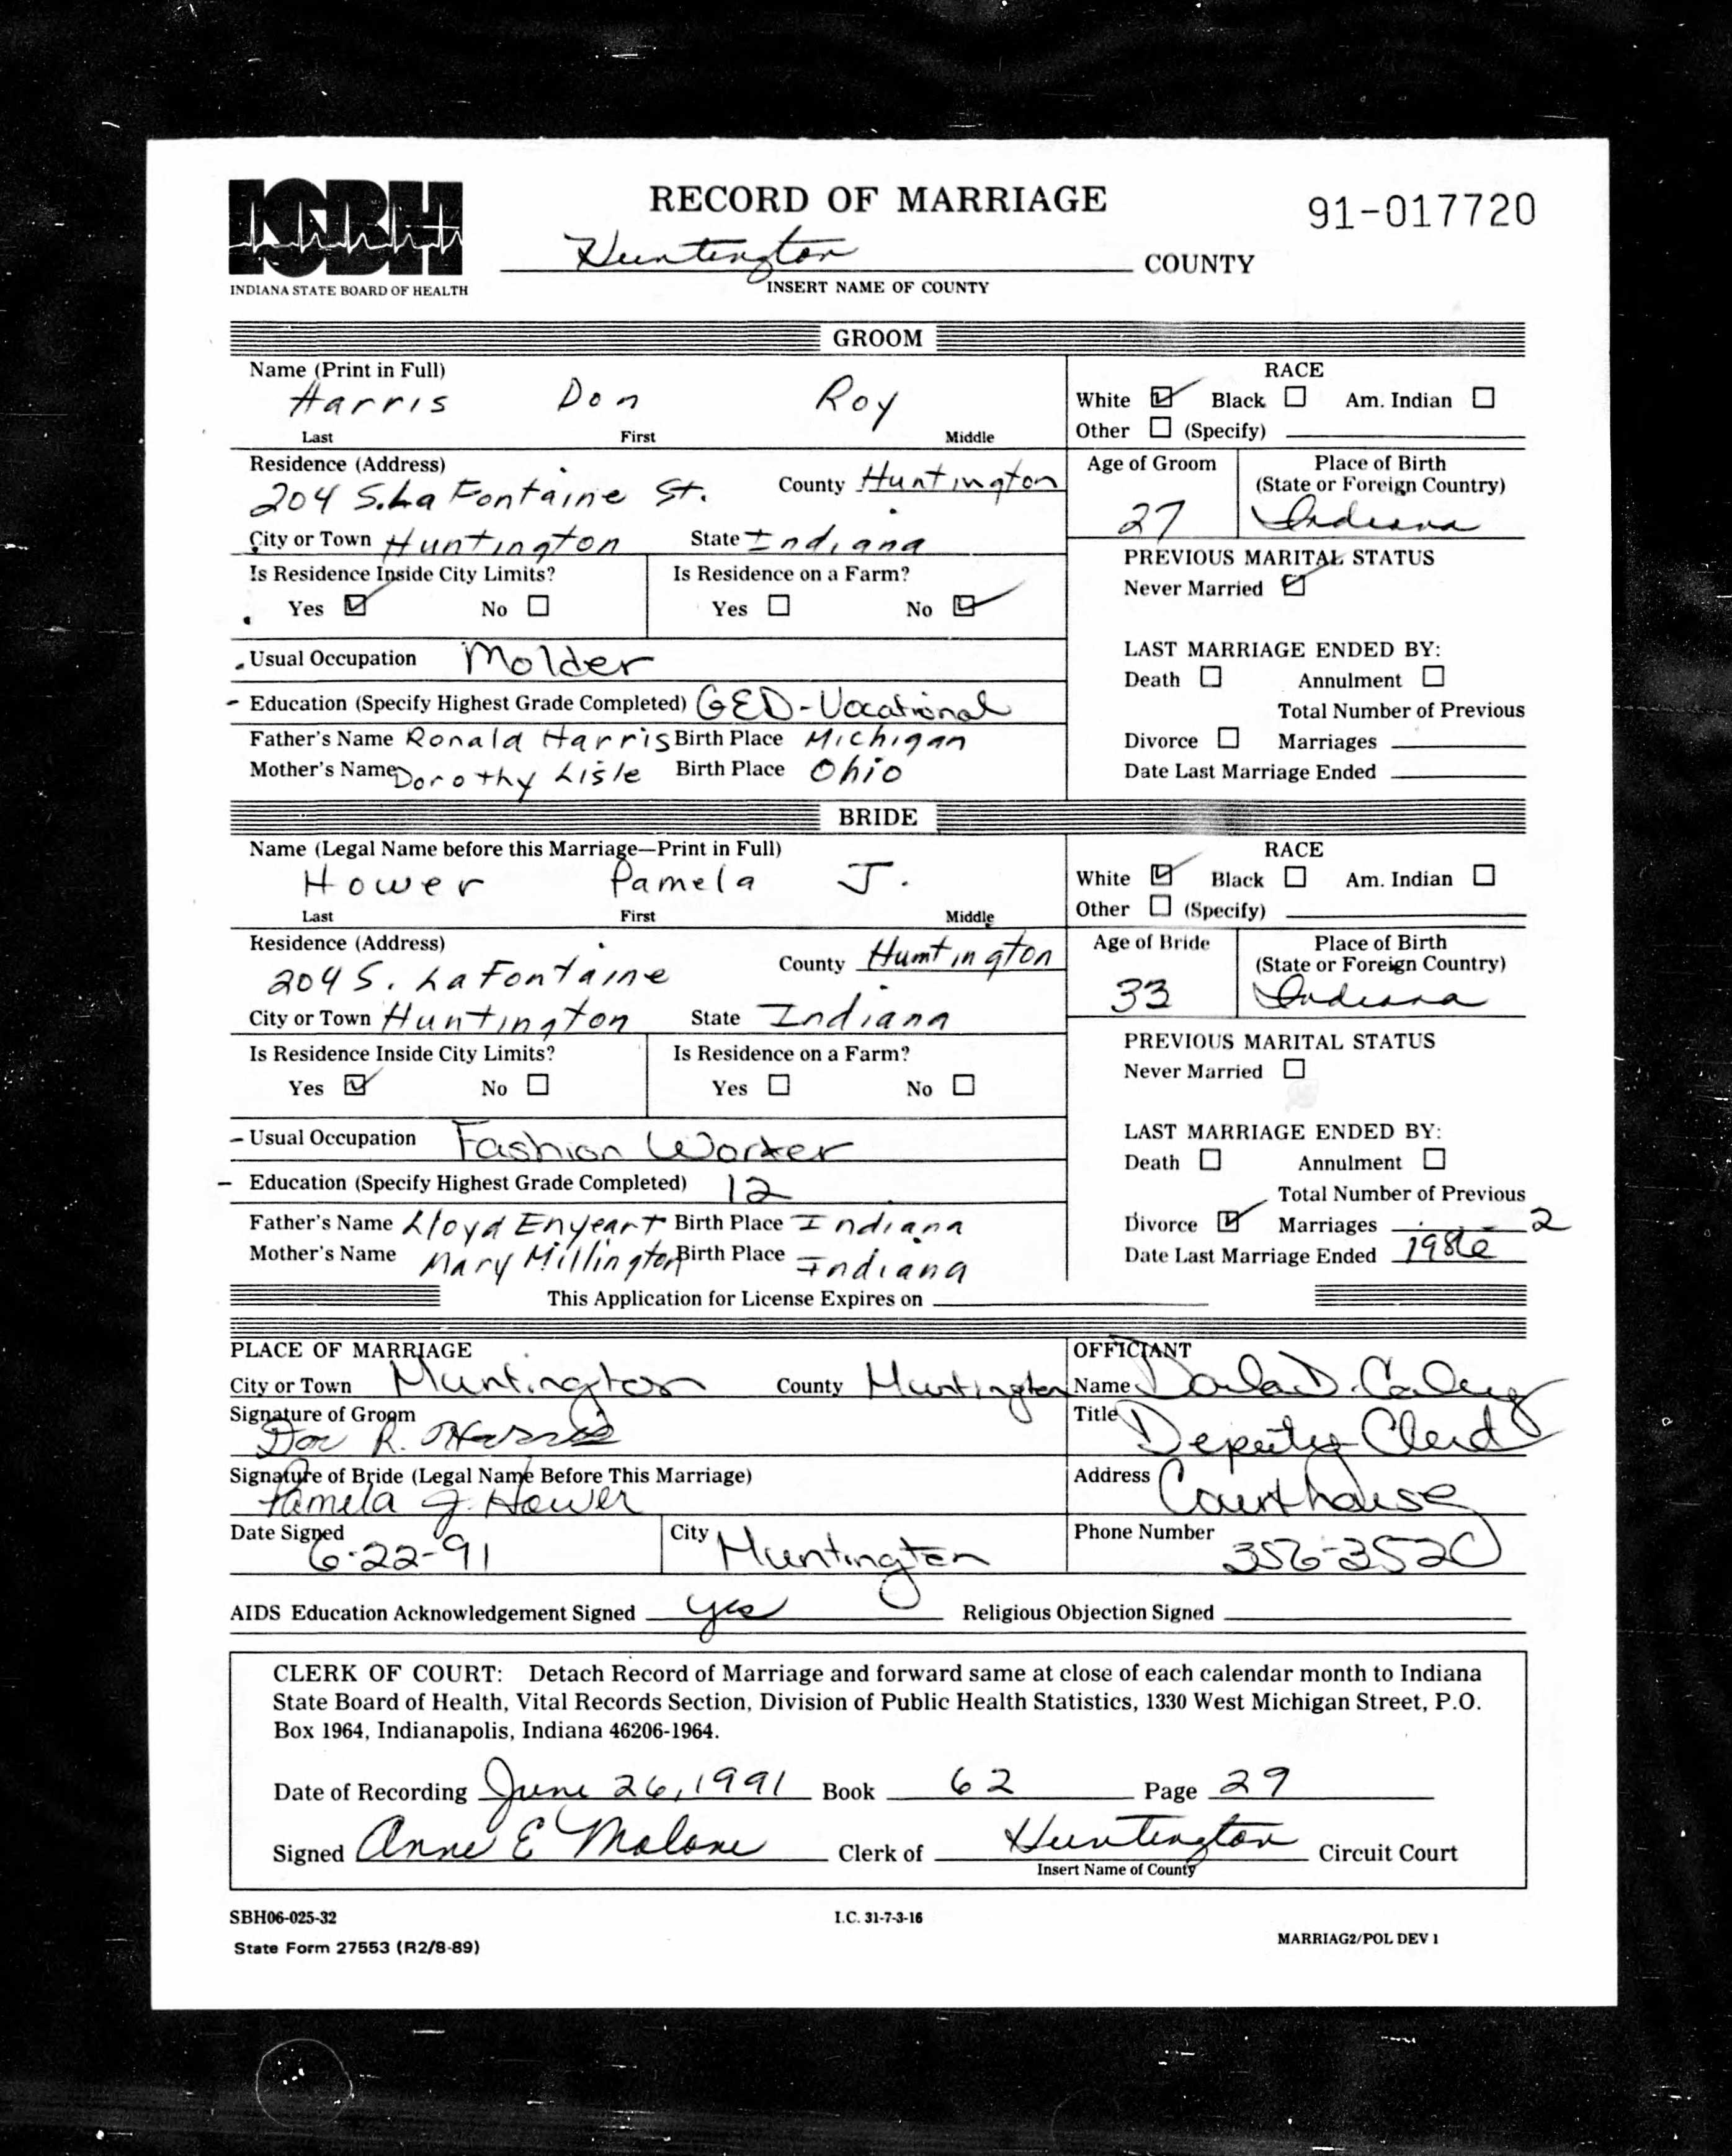 ISBH
INDIANA STATE BOARD OF HEALTH
RECORD OF MARRIAGE
91-017720
Huntington COUNTY
INSERT NAME OF COUNTY
GROOM
Name (Print in Full)
Harris Don Roy
Last First Middle
RACE
White ☑ Black ☐ Am. Indian ☐
Other ☐ (Specify)
Residence (Address)
204 S. La Fontaine St. County Huntington
City or Town Huntington State Indiana
Age of Groom
27
Place of Birth
(State or Foreign Country)
Indiana
Is Residence Inside City Limits?
Yes ☑ No ☐
Is Residence on a Farm?
Yes ☐ No ☑
PREVIOUS MARITAL STATUS
Never Married ☑
Usual Occupation Molder
Education (Specify Highest Grade Completed) GED-Vocational
Father's Name Ronald Harris Birth Place Michigan
Mother's Name Dorothy Lisle Birth Place Ohio
LAST MARRIAGE ENDED BY:
Death ☐ Annulment ☐
Total Number of Previous
Divorce ☐ Marriages
Date Last Marriage Ended
BRIDE
Name (Legal Name before this Marriage—Print in Full)
Hower Pamela J.
Last First Middle
RACE
White ☑ Black ☐ Am. Indian ☐
Other ☐ (Specify)
Residence (Address)
204 S. La Fontaine County Humtington
City or Town Huntington State Indiana
Age of Bride
33
Place of Birth
(State or Foreign Country)
Indiana
Is Residence Inside City Limits?
Yes ☑ No ☐
Is Residence on a Farm?
Yes ☐ No ☐
PREVIOUS MARITAL STATUS
Never Married ☐
Usual Occupation Fashion Worker
Education (Specify Highest Grade Completed) 12
Father's Name Lloyd Enyeart Birth Place Indiana
Mother's Name Mary Millington Birth Place Indiana
LAST MARRIAGE ENDED BY:
Death ☐ Annulment ☐
Total Number of Previous
Divorce ☑ Marriages 2
Date Last Marriage Ended 1986
This Application for License Expires on
PLACE OF MARRIAGE
City or Town Huntington County Huntington
OFFICIANT
Name D.
Signature of Groom
Don R. Harris
Title Deputy Clerk
Signature of Bride (Legal Name Before This Marriage)
Pamela J. Hower
Address Courthouse
Date Signed
6-22-91
City Huntington
Phone Number
356-3520
AIDS Education Acknowledgement Signed yes Religious Objection Signed
CLERK OF COURT: Detach Record of Marriage and forward same at close of each calendar month to Indiana
State Board of Health, Vital Records Section, Division of Public Health Statistics, 1330 West Michigan Street, P.O.
Box 1964, Indianapolis, Indiana 46206-1964.
Date of Recording June 26, 1991 Book 62 Page 29
Signed Anne E Malone Clerk of Huntington Circuit Court
Insert Name of County
SBH06-025-32
I.C. 31-7-3-16
State Form 27553 (R2/8-89)
MARRIAG2/POL DEV 1